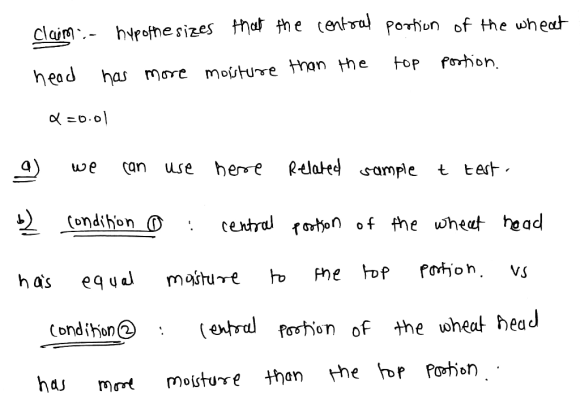 Claim :- hypothesizes that the central portion of the wheat
head has more moisture than the top portion.
α = 0.01
a) we can use here Related sample t test.
b) Condition ① : central portion of the wheat head
has equal moisture to the top portion. vs
Condition ② : Central portion of the wheat head
has more moisture than the top portion.